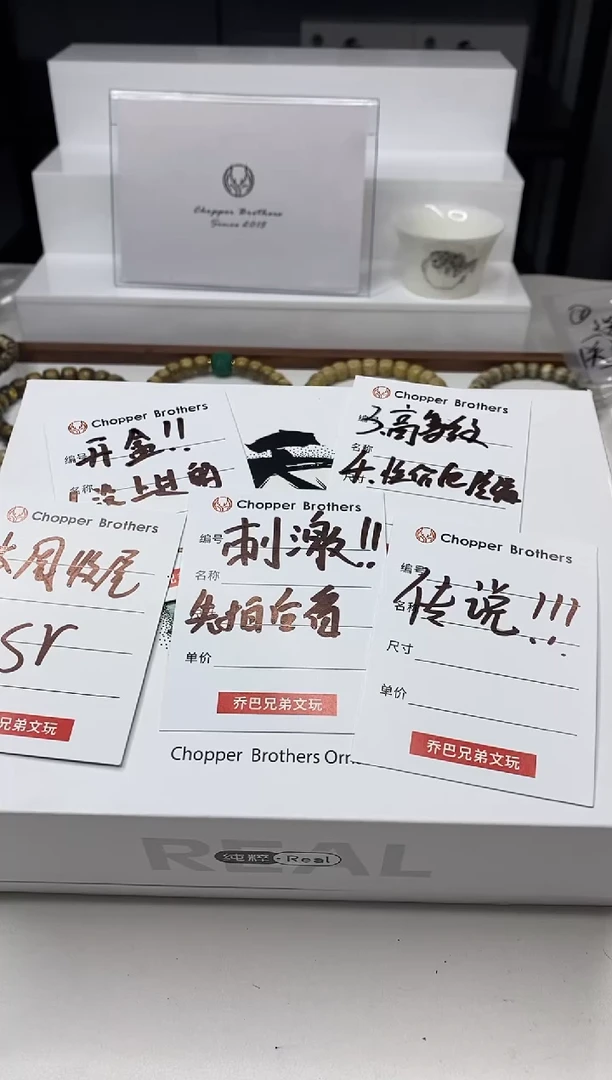 Chopper Brothers
Since 2018
Chopper Brothers
编号
开盒!!
名称
没上过的
Chopper Brothers
3.高多纹
名称
4.性价比尾盘
Chopper Brothers
大周收尾
sr
兄弟文玩
Chopper Brothers
编号
刺激!!
名称
先拍后看
单价
乔巴兄弟文玩
Chopper Brothers
编号
名称
传说!!!
尺寸
单价
乔巴兄弟文玩
Chopper Brothers Orn
REAL
纯粹·Real